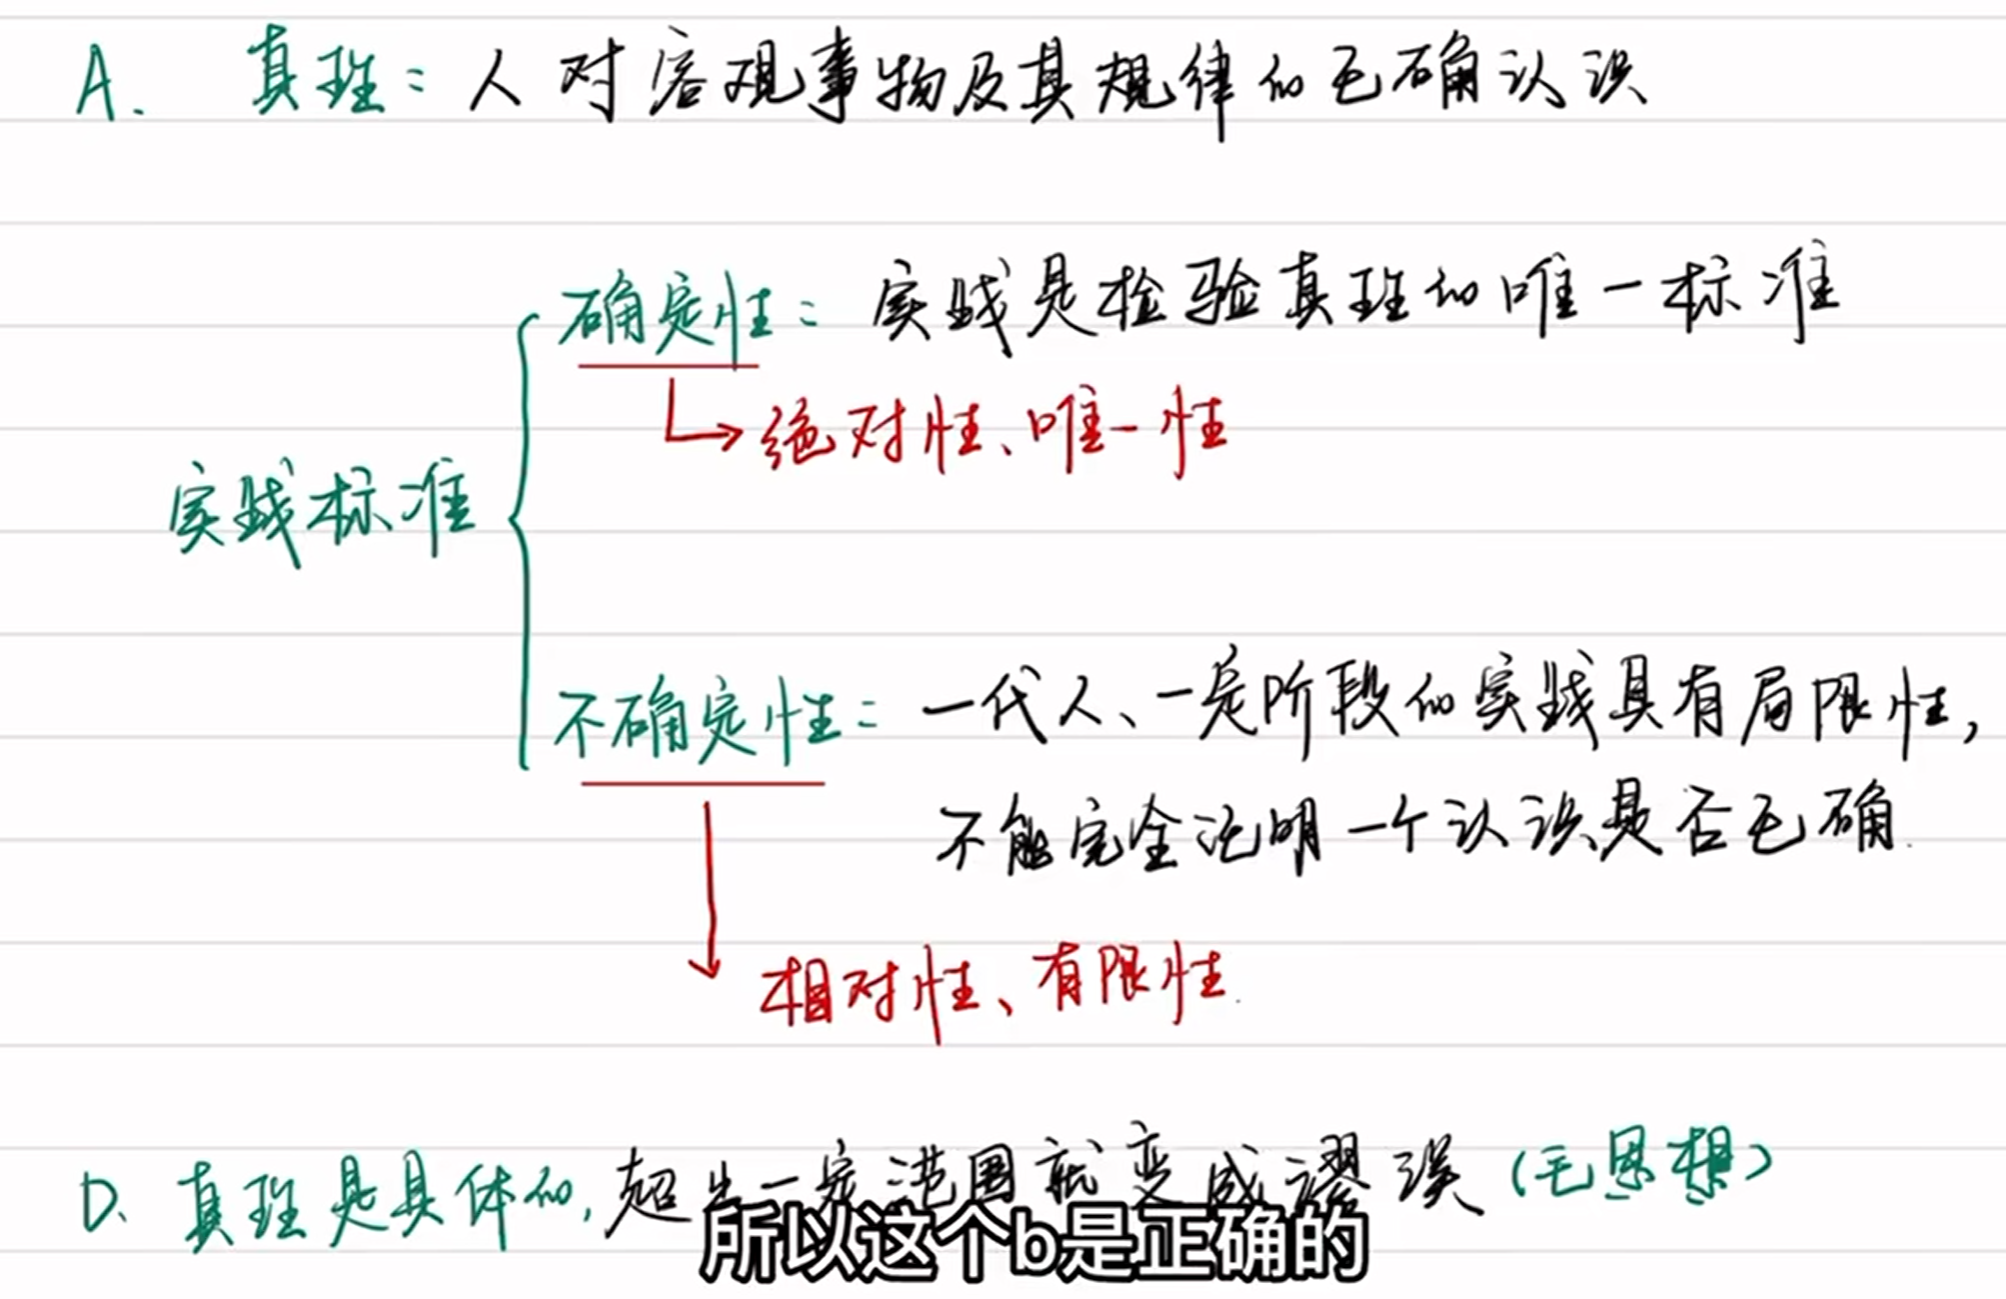 A. 真理：人对客观事物及其规律的正确认识
确定性：实践是检验真理的唯一标准
绝对性、唯一性
实践标准
不确定性：一代人、一定阶段的实践具有局限性，
不能完全证明一个认识是否正确.
相对性、有限性.
D. 真理是具体的，超出一定范围就变成谬误（毛思想）
所以这个b是正确的